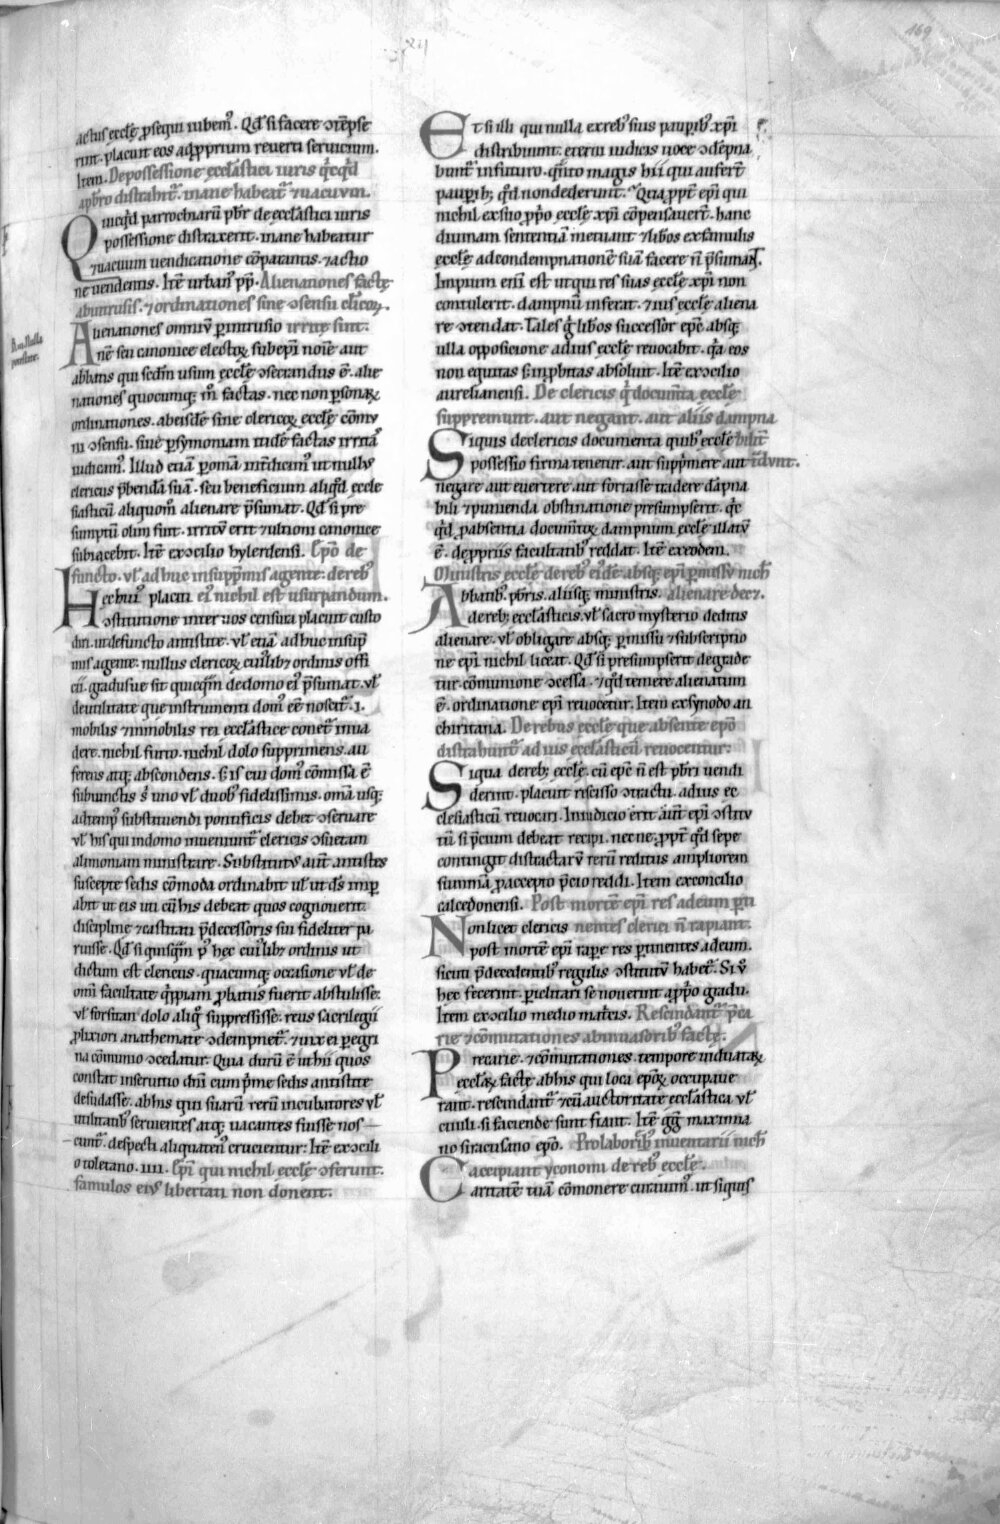 169
xij
actus ecclę ꝓsequi iubem᷒. Qđ si facere ↄtēpse
rint. placuit eos ad ꝓprium reverti servicium.
Item. De possessione ecclastici iuris qͥcqͥd
a pb̄ro distrahit᷒. inane habeat᷒ ⁊ vacuum.
Quicqͥd parrochiarū pb̄r de ecclastici iuris
possessione distraxerit. inane habeatur
⁊ vacuum vendicatione cōparantis. ⁊ actio
ne vendentis. Itē urban᷒ pp̄. Alienationes factę
ab intrusis. ⁊ ordinationes sine ↄsensu cl̄icoꝝ.
Alienationes omniū ꝑ intrusio irritę sint.
nē seu canonice electoꝝ sub epī noīe aut
abbatis qui secdm̄ usum ecclę ↄsecrandus ē. alie
nationes quocumq; m̊ factas. nec non ꝑsonaꝝ
ordinationes. ab eisdē sine clericoꝝ ecclę cōmu
ni ↄsensu. sive ꝑ symoniam itidē factas irritas
iudicam᷒. Illud etiā ꝑ omīa int̄dicim᷒ ut nullus
clericus p̄bendā suā. seu beneficium aliqͥd eccle
siasticū aliquom̊ alienare p̄sumat. Qđ si pre
sumptū olim fuit. irritū erit ⁊ ultioni canonice
subiacebit. Itē ex ↄcilio hylerdensi. Ep̄o de
functo. vl̄ adhuc in supp̄mis agente: de reb᷒
ei᷒ nichil est usurpandum.
Hec hui᷒ placiti
ↄstitutione inter vos censura placuit custo
diri. ut defuncto antistite. vl̄ etiā adhuc in sup̄
mis agente: nullus clericoꝝ cui᷒lib; ordinis offi
cii. gradusve sit quicqͣm de domo ei᷒ p̄sumat. vl̄
de utilitate que instrumenti dom᷒ eē noscit᷒. i.
mobilis ⁊ inmobilis rei ecclastice conet᷒ inva
dere. nichil furto. nichil dolo supprimens. au
ferens atq; abscondens. s; is cui dom᷒ cōmissa ē
subiunctis s᷒ uno vl̄ duob᷒ fidelissimis. omīa usq;
ad temp᷒ substituendi pontificis debet ↄservare
vl̄ his qui in domo inveniunt᷒ clericis ↄsuetam
alimoniam ministrare. Substitutus aut̄ antistes
suscepte sedis cōmoda ordinabit vl̄ ut dīs imp̄
abit ut eis uti cū his debeat quos cognoverit
discipline ⁊ castitati p̄decessoris sui fideliter pa
ruisse. Qđ si quisqͣm p᷒ hec cui᷒lib; ordinis ut
dictum est clericus. quacumq; occasione vl̄ de
omī facultate qͥppiam ꝓbatus fuerit abstulisse:
vl̄ forsitan dolo aliq᷒ suppressisse. reus sacrilegii
ꝓlixiori anathemate ↄdempnet᷒. ⁊ vix ei peregri
na cōmunio ↄcedatur. Quia durū ē ut hii quos
constat in servitio dn̄i cum p̄me sedis antistite
desudasse. ab his qui suarū rerū incubatores vl̄
utilitatib᷒ servientes atq; vacantes fuisse nos
cunt᷒. despecti aliquatenus crucientur: Itē ex ↄcili
o toletano. iiii. Ep̄i qui nichil ecclę ↄferunt:
famulos eius libertati non donent.
Et si illi qui nulla ex reb᷒ suis paupib᷒ xp̄i
distribuunt. eterni iudicis voce ↄdēpna
bunt᷒ in futuro. qͣnto magis hii qui aufert̄
paupib; qđ non dederunt. Qua ꝓpt᷒ ep̄i qui
nichil ex suo ꝓp̄o ecclę xp̄i cōpensavert̄. hanc
divinam sententiā metuant ⁊ lib̄os ex famulis
ecclę ad condempnationē suā facere n̄ p̄sumant.
Impium eni᷒ est ut qui res suas ecclę xp̄i non
contulerit. dampnū inferat. ⁊ ius ecclę aliena
re ↄtendat. Tales g̊ lib̄os successor ep̄c absq;
ulla opposicione ad ius ecclę revocabit. qͥa eos
non equitas s; inꝓbitas absolvit. Itē ex ↄcilio
aurelianensi. De clericis qͥ documīta ecclę
suppremunt. aut negant. aut aliis dampna
bilit̄
Siquis de clericis documenta quib᷒ ecclę
possessio firma tenetur. aut supp̄mere aut t᷒dunt.
negare aut evertere. aut fortasse tradere dāpna
bili ⁊ punienda obstinatione presumpserit. qͥc
qͥd ꝑ absentiā documtoꝝ dampnum ecclę illatum
ē. de ꝓpriis facultatib᷒ reddat. Itē ex eodem.
Ministris ecclę de reb᷒ ei᷒dē absq; ep̄i ꝑmissu nich̄
alienare decꝫ.
Abbatib᷒. pb̄ris. aliisq; ministris.
de reb; ecclasticis. vl̄ sacro mysterio deditis
alienare. vl̄ obligare absq; ꝑmissu ⁊ subscriptio
ne ep̄i nichil liceat. Qđ si presumpserit degrade
tur cōmunione ↄcessa. ⁊ qđ temere alienatum
ē. ordinatione ep̄i revocetur. Item ex synodo an
chiritana. De rebus ecclę que absente ep̄o
distrahunt᷒ ad ius ecclasticū revocentur:
Siqua de reb; ecclę. cū ep̄c n̄ est pb̄ri vendi
derint. placuit rescisso ↄtractu. ad ius ec
clesiasticū revocari. In iudicio erit aut̄ ep̄i ↄstitu
tū si p̄cium debeat recipi. nec ne. ꝓpt᷒ qđ sepe
contingit distractarū rerū reditus ampliorem
summā ꝓ accepto p̄cio reddi. Item ex concilio
calcedonensi. Post mortē ep̄i res ad eum ꝑti
nentes clerici n̄ rapiant.
Non licet clericis
post mortē ep̄i rape res ꝑtinentes ad eum.
sicuti p̄cedentib᷒ regulis ↄstitutū habet᷒. Si v᷒
hec fecerint. periclitari se noverint a ꝓp̄o gradu.
Item ex ↄcilio medio matcis. Rescindant᷒ p̄ca
rie ⁊ cōmutationes ab invasorib᷒ factę.
Precarie. ⁊ cōmutationes. tempore viduataꝝ
ecclaꝝ factę ab his qui loca ep̄oꝝ occupave
rant. rescindant᷒ ⁊ cū auctoritate ecclastica vl̄
civili. si faciende sunt fiant. Itē gg̊ maximia
no siracusano ep̄o. Pro laborib᷒ inventarii nich̄
accipiant yconomi de reb᷒ ecclę.
Caritatē tuā cōmonere curavim᷒. ut siquis